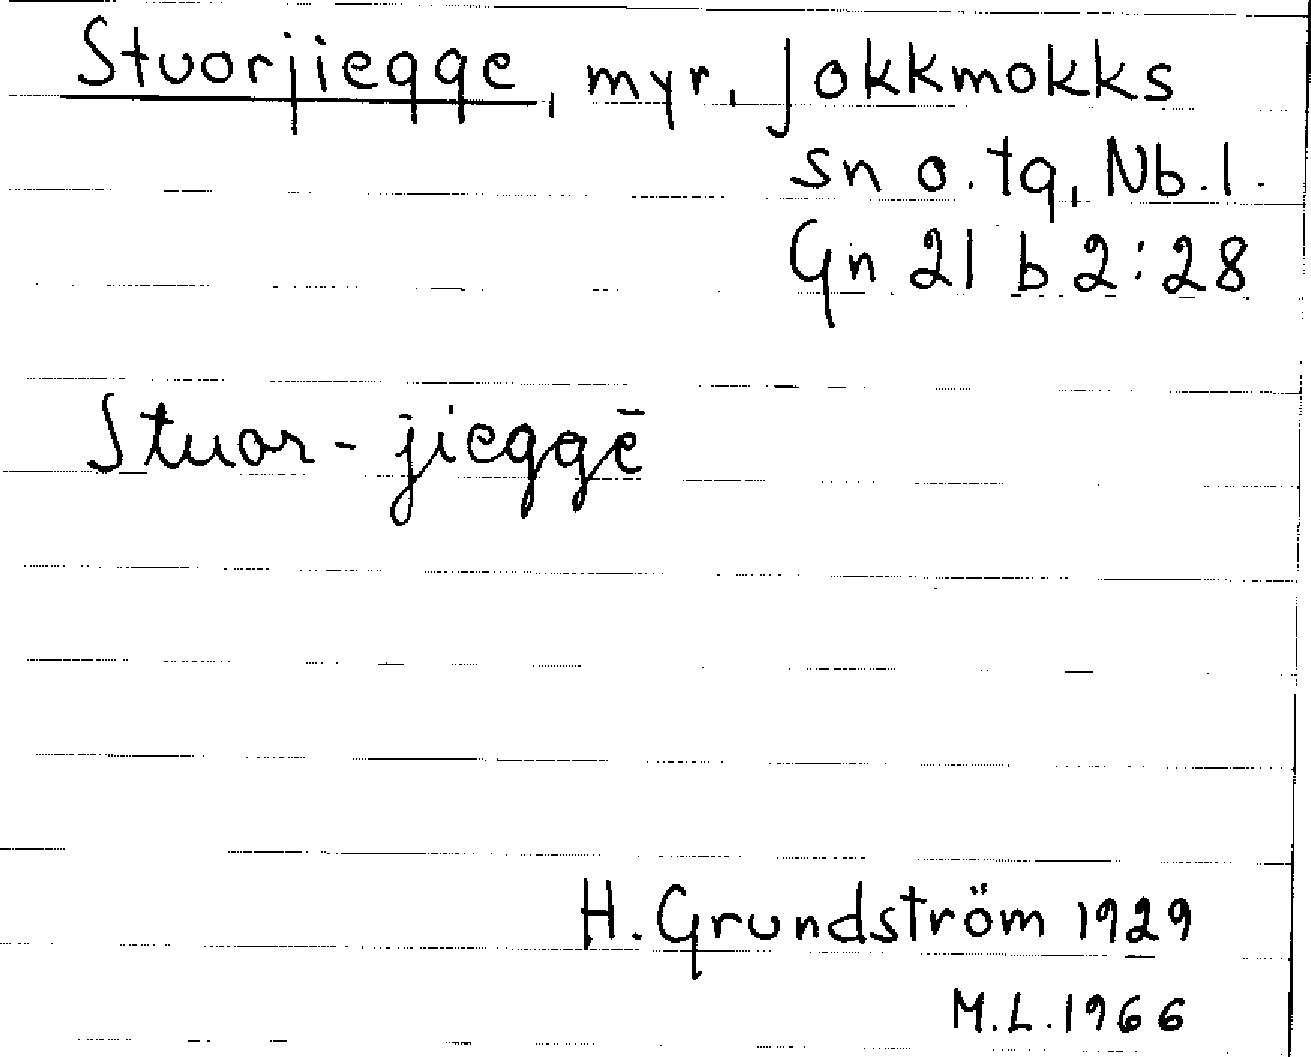 Stuorjiegge, myr, Jokkmokks
sn o. tg, Nb. l.
Gn 21 b 2:28
Stuor-jieggē
H. Grundström 1929
M.L. 1966